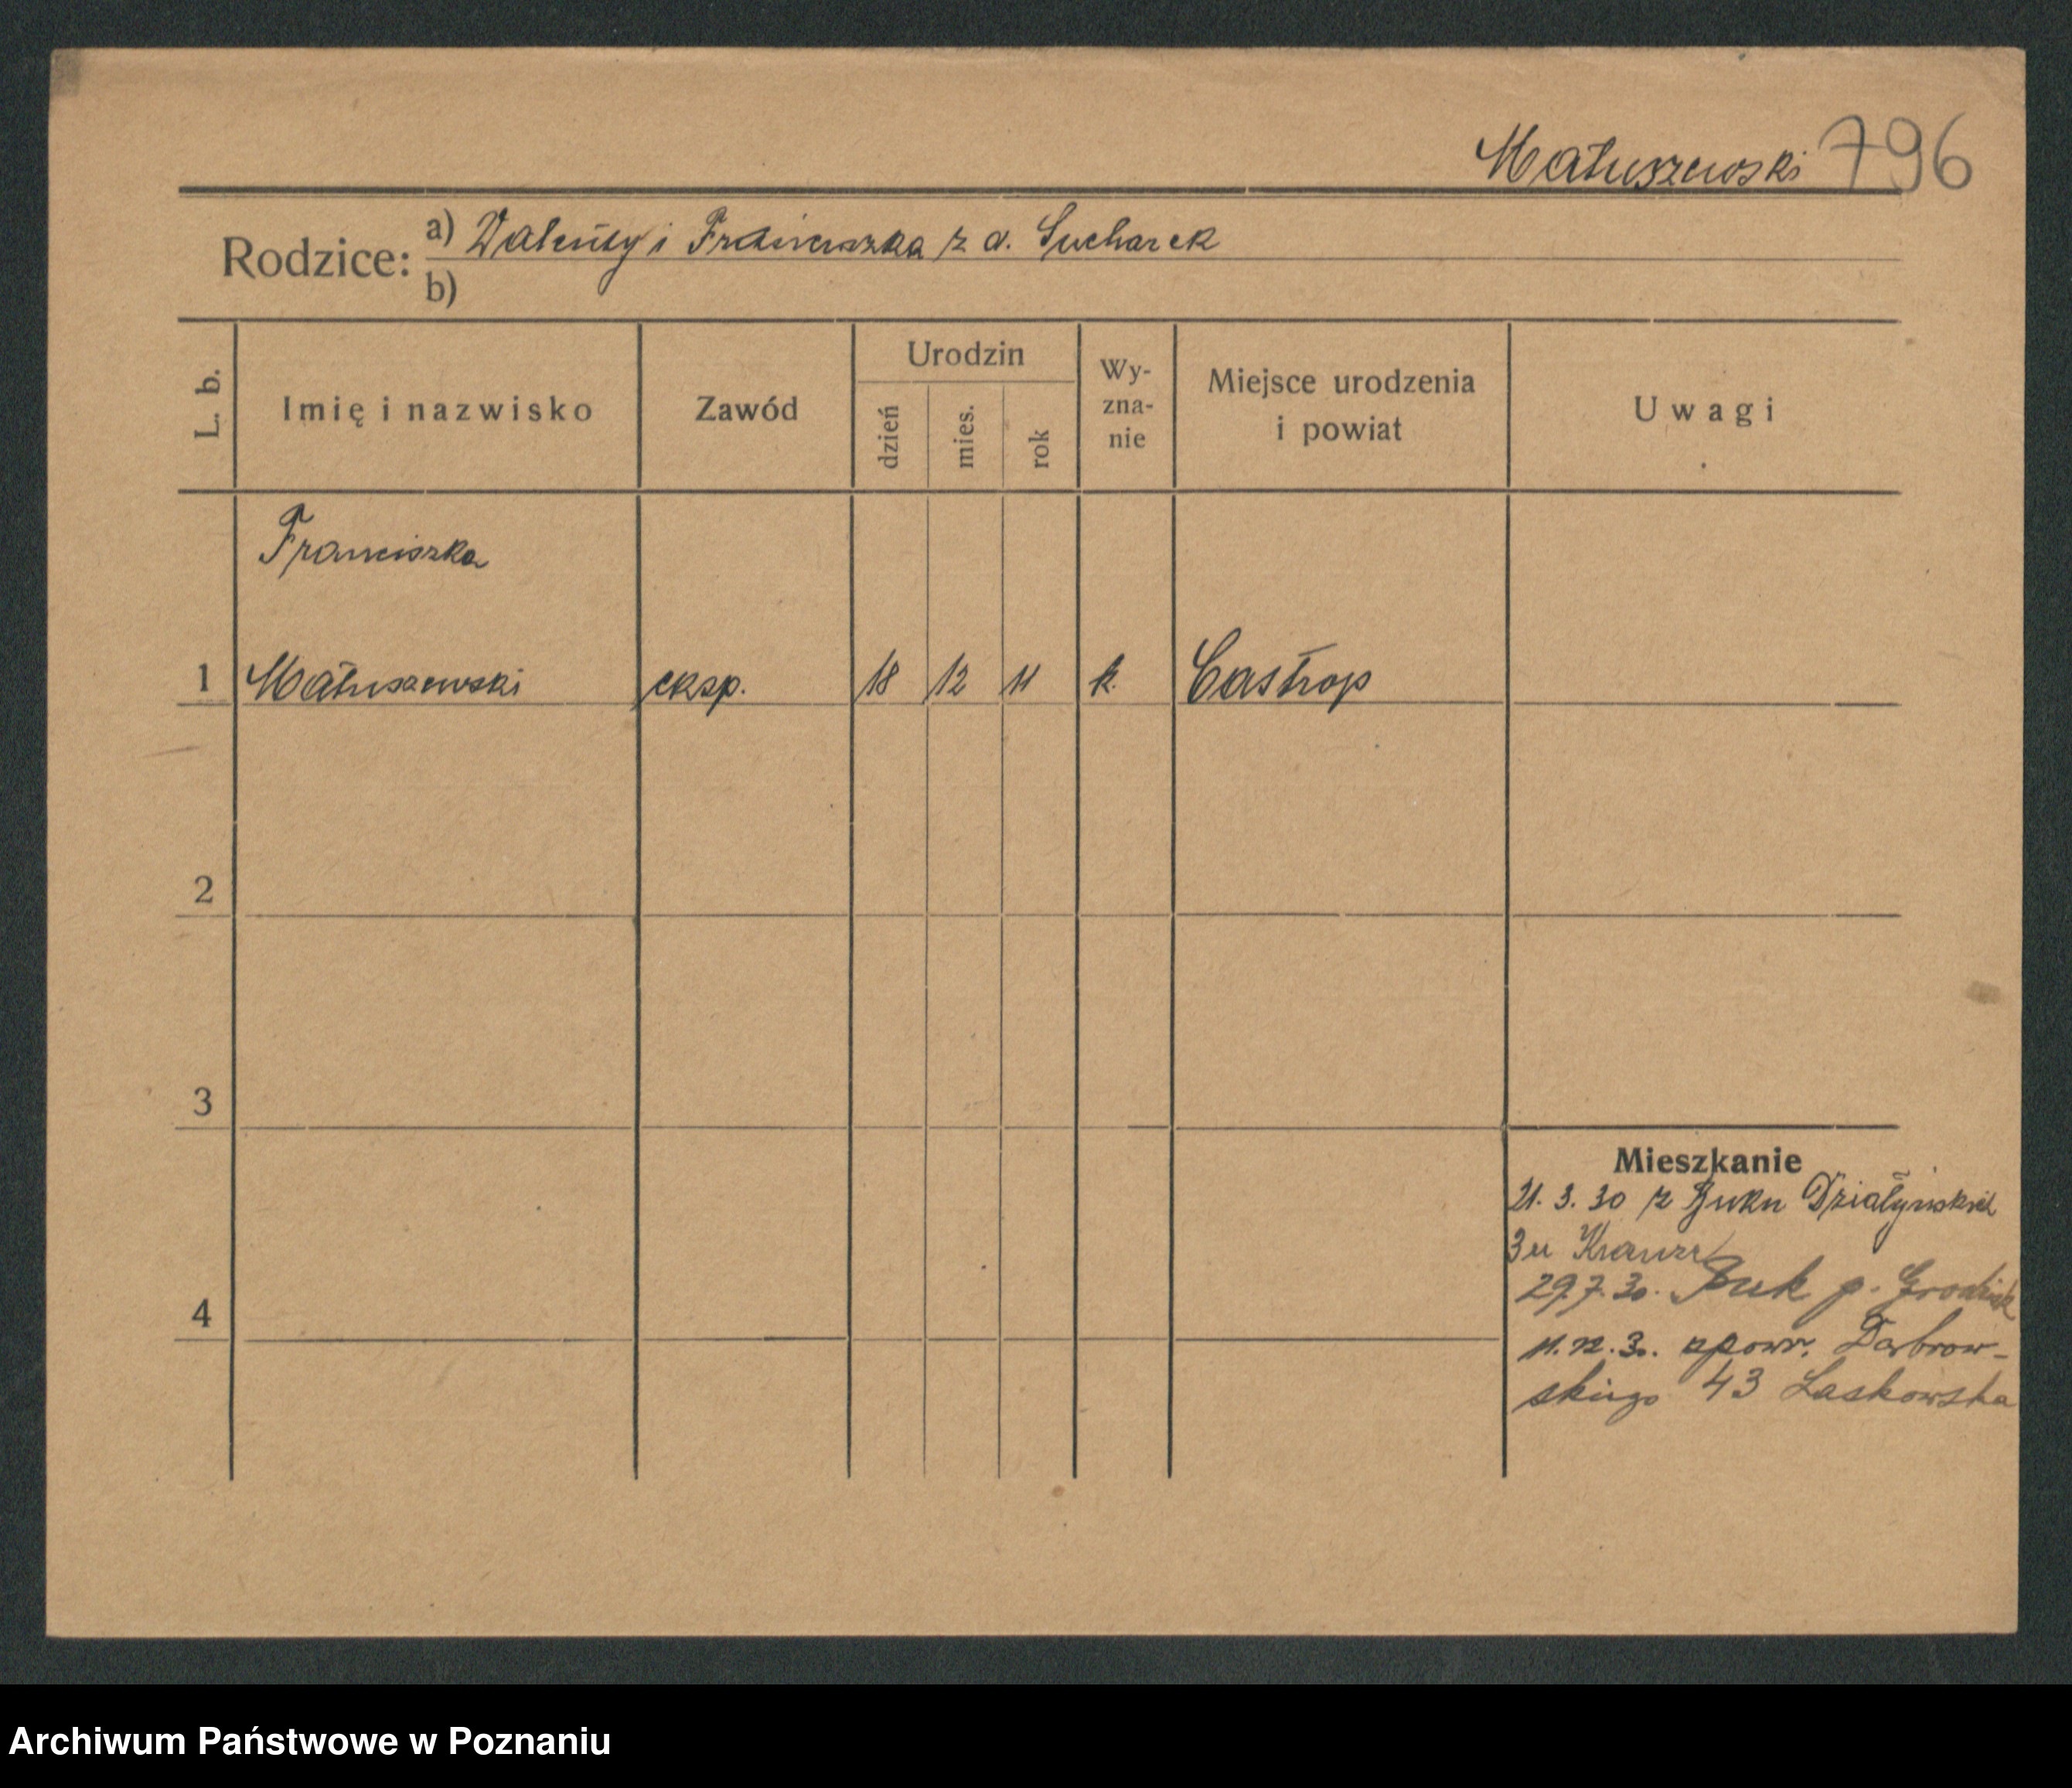 Matuszewski 796
Rodzice: a) Walenty i Franciszka z d. Sucharek
b)
L. b.
Imię i nazwisko
Zawód
Urodzin
dzień
mies.
rok
Wy-
zna-
nie
Miejsce urodzenia
i powiat
Uwagi
Franciszka
1 Matuszewski eksp. 18 12 11 k. Castrop
2
3
4
Mieszkanie
21. 3. 30 z Buku Działyńskich
3 u
29.7.30. Buk p. Grodzisk
11.12.30. zpowr. Dąbrow-
skiego 43 Laskowska
Archiwum Państwowe w Poznaniu